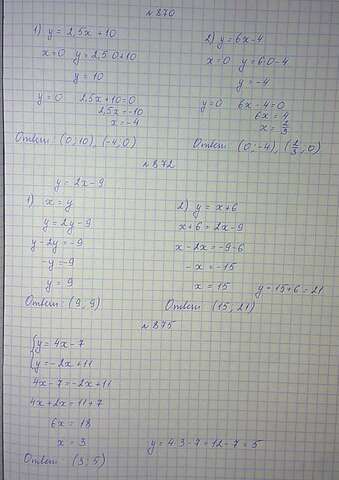 №870
1) y = 2,5x + 10
x=0 y=2,5·0+10
y = 10
y=0 2,5x+10=0
2,5x=-10
x=-4
Ответ: (0; 10), (-4; 0)
2) y = 6x - 4
x=0 y=6·0-4
y = -4
y=0 6x-4=0
6x = 4
x = 2/3
Ответ: (0; -4), (2/3; 0)
№872
y = 2x-9
1) x = y
y = 2y-9
y-2y=-9
-y=-9
y = 9
Ответ: (9; 9)
2) y = x+6
x+6 = 2x-9
x-2x=-9-6
-x=-15
x = 15 y=15+6=21
Ответ: (15; 21)
№875
{y = 4x-7
{y = -2x+11
4x-7=-2x+11
4x+2x=11+7
6x = 18
x = 3 y = 4·3-7=12-7=5
Ответ: (3; 5)